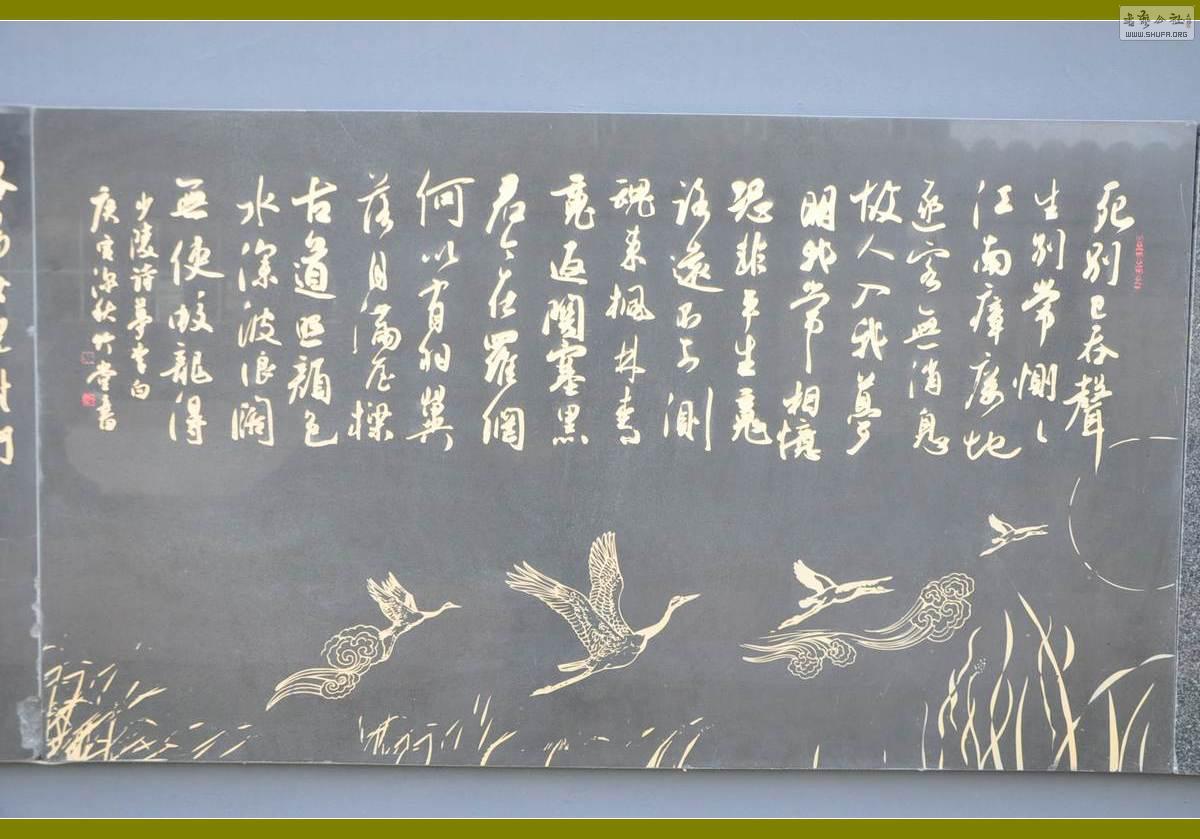 死别已吞聲
生别常惻〻
江南瘴癘地
逐客無消息
故人入我夢
明我常相憶
恐非平生魂
路遠不可測
魂来楓林青
魂返關塞黑
君今在羅網
何以有羽翼
落月滿屋樑
古道照顔色
水深波浪闊
無使蛟龍得
少陵詩夢李白
庚寅深秋竹堂書
WWW.SHUFA.ORG